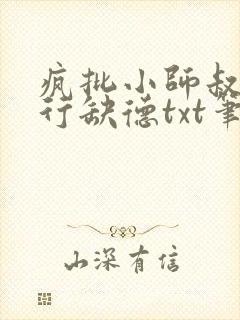 疯批小师叔
行缺德txt笔
山深有信